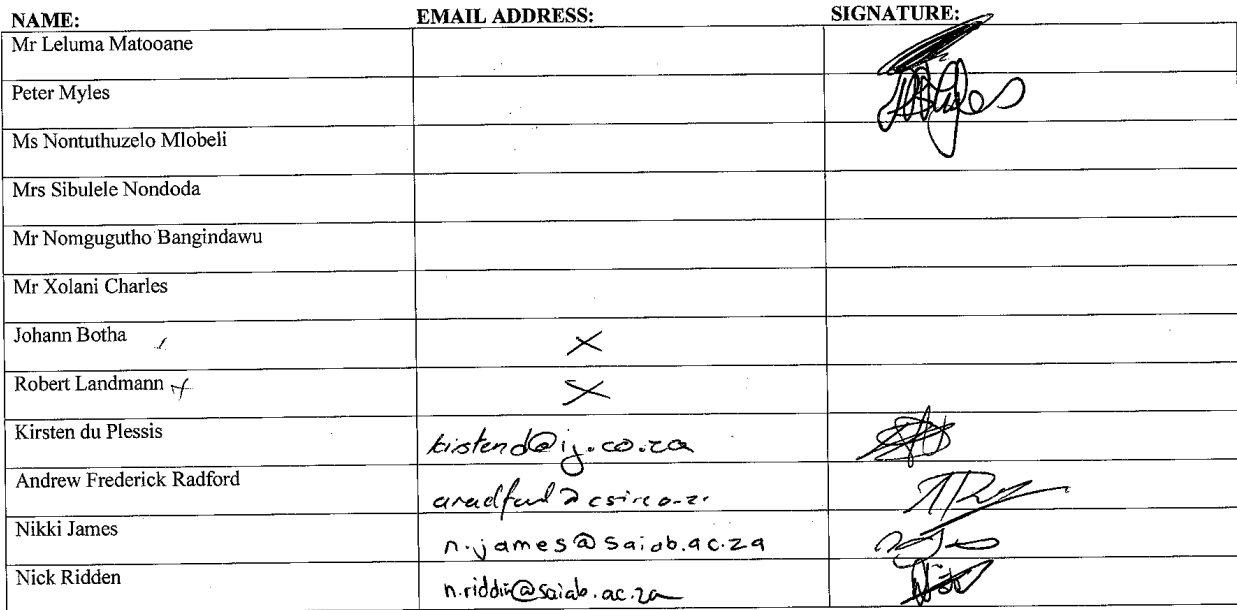 NAME: EMAIL ADDRESS: SIGNATURE:
Mr Leluma Matooane
Peter Myles
Ms Nontuthuzelo Mlobeli
Mrs Sibulele Nondoda
Mr Nomgugutho Bangindawu
Mr Xolani Charles
Johann Botha X
Robert Landmann X
Kirsten du Plessis kirstend@ij.co.za
Andrew Frederick Radford
Nikki James n.james@saiab.ac.za
Nick Ridden n.riddin@saiab.ac.za